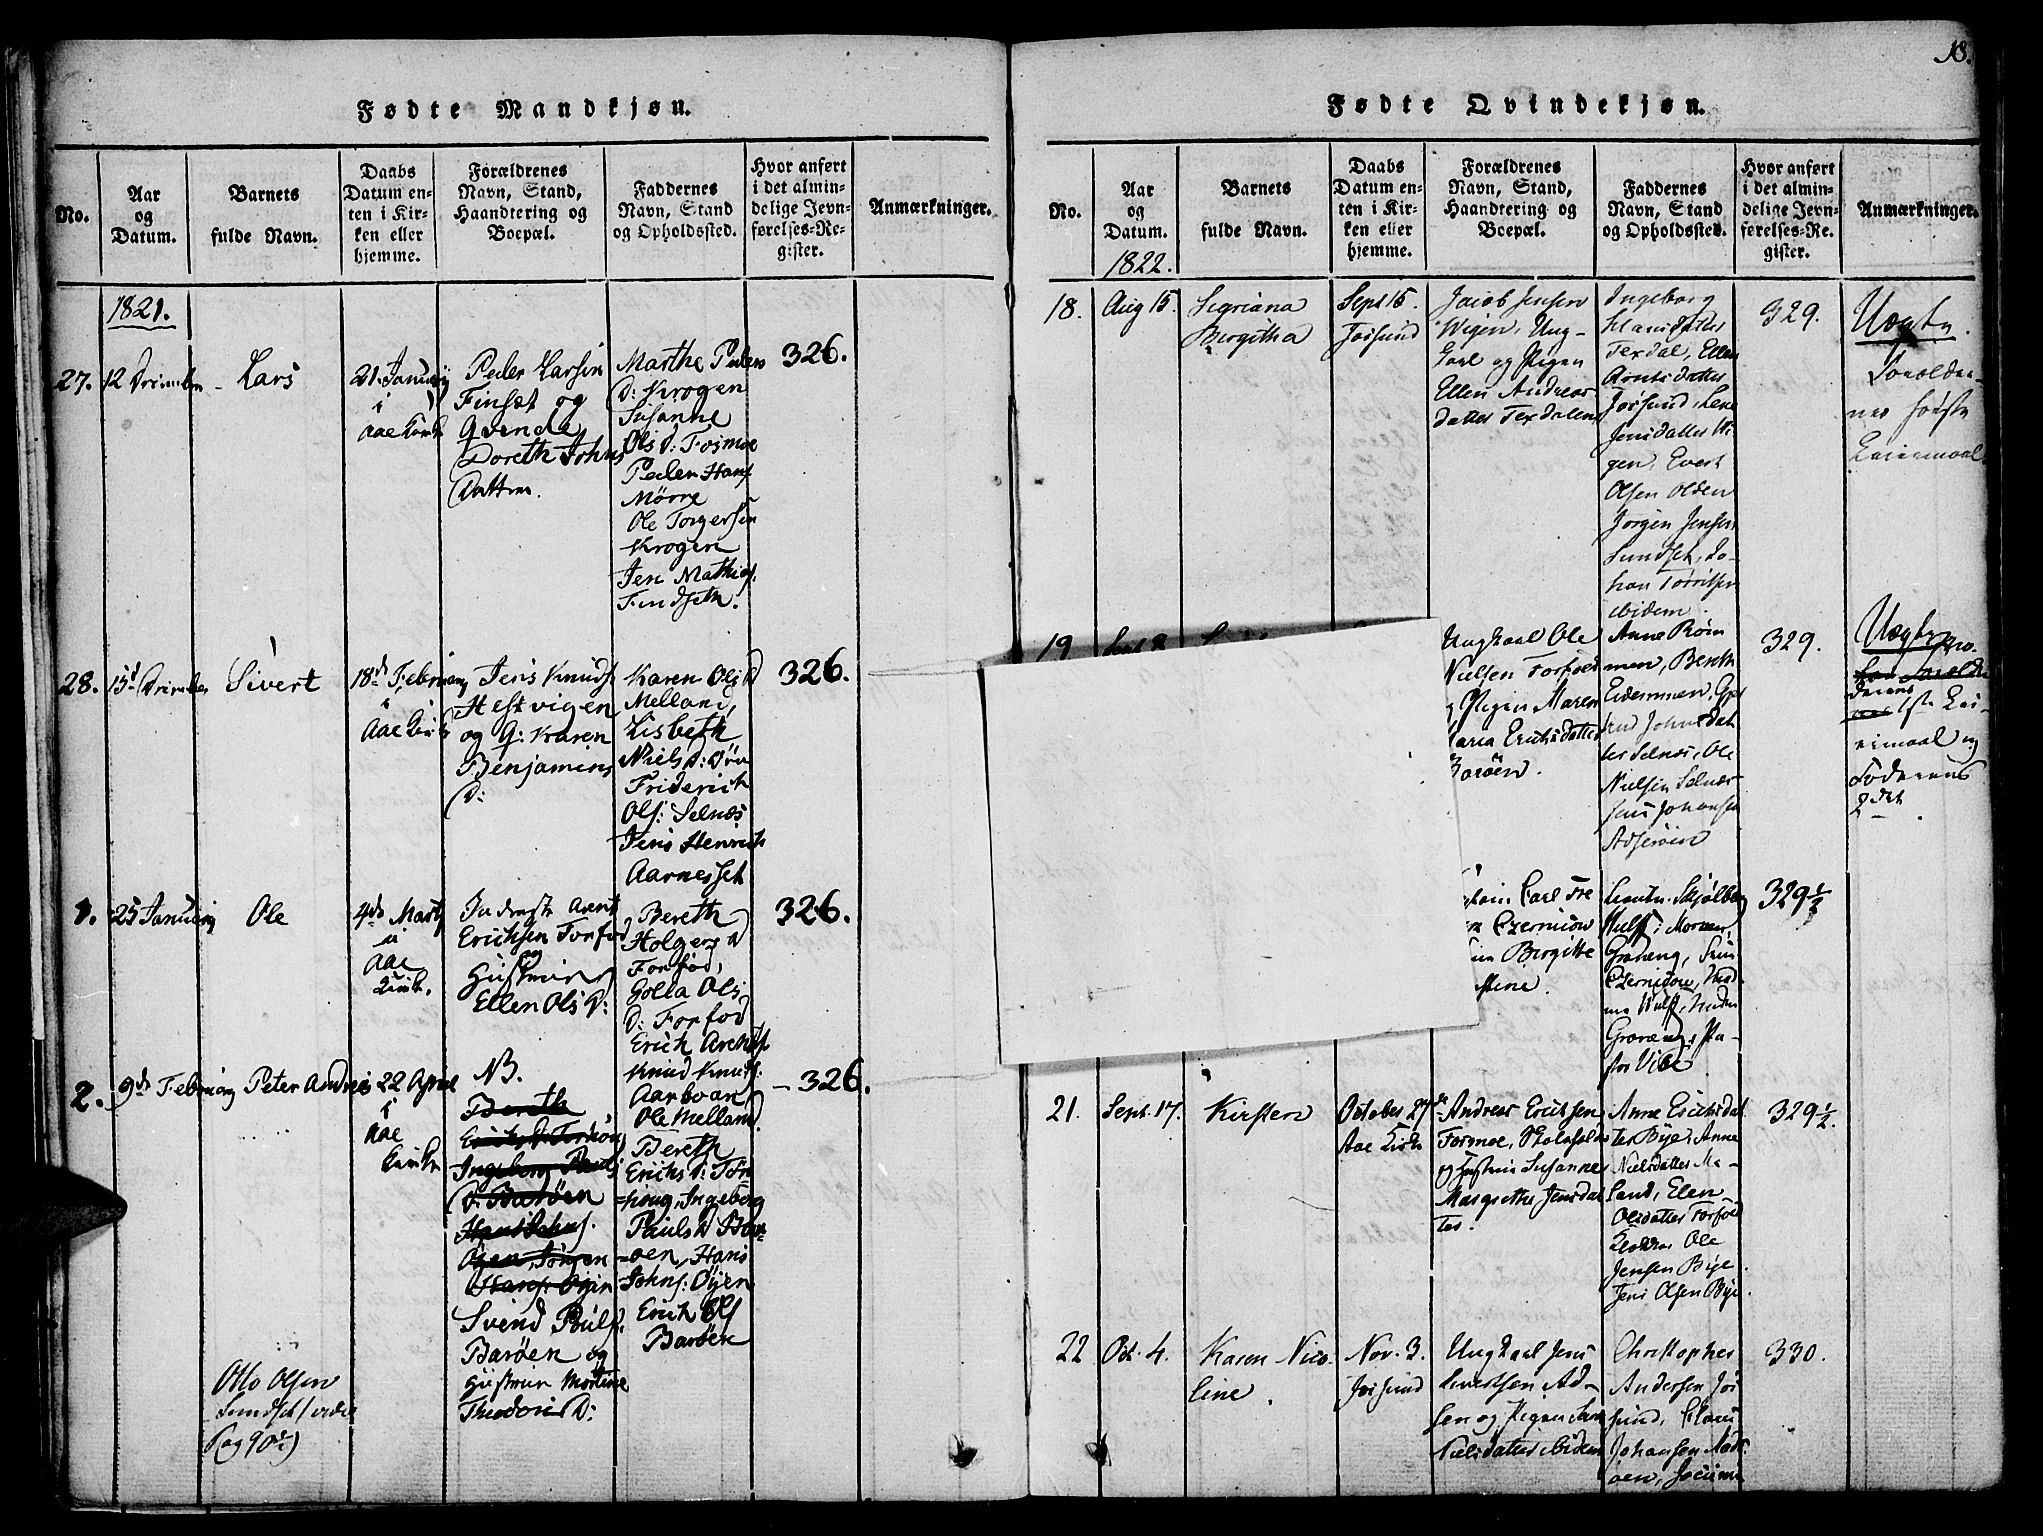 18.
Fødte Mandkjøn.
No.
Aar
og
Datum.
Barnets
fulde Navn.
Daabs
Datum en-
ten i Kir-
ken eller
hjemme.
Forældrenes
Navn, Stand,
Haandtering og
Boepæl.
Faddernes
Navn, Stand
og Opholdssted.
Hvor anført
i det almin-
delige Jevn-
førelses-Re-
gister.
Anmærkninger.
1821.
27.
Lars
21 January
i
Aae Kirke
Peder Larsen
Finset og
Qvinde
Doreth Johns
Datter.
Marthe Peders
D: Krogen
Susanne
Ols D: Formoe
Peder Hans
Mørre
Ole Torgersen
Krogen
Jen Mathias
Findseth.
326.
28.
Sivert
18de February
i
Aae Kirke
Jens Knuds
Hestvigen
og Q: Karen
Benjamins
D:
Karen Ols D
Melland,
Lisbeth
Niels D:
Friderich
Ols: Selnæs
Jens Henrich
Aarnesset
326.
1.
25 January
Ole
4de Marty
i
Aae
Kirke.
Arent
Erichsen Forfod
og
Hustrue
Ellen Ols D:
Bereth
Holgers D
Forfod,
Golla Ols
D: Forfod
Erich Arents
Knud Knuds:
Aarboan
Ole Melland
326.
2.
9de February
Peter Andreas
22 April
i
Aae
Kirke
NB.
Bereth
Erichs D: Forhoug
Ingeborg Pauls
D: Barøen
Hans Johns.
Øyen, Jørgen
Hans: Øyen
Svend Pouls.
Barøen og
Hustrue Martine
Theodors D:
Bereth
Erichs D: For-
houg, Ingeborg
Pauls D Bar-
øen, Hans
Johns: Øyen
Erich Ols
Barøen
326.
Otto Olsen
Sundset (vide
Pag 90)
Fødte Qvindekjøn.
No.
Aar
og
Datum.
1822.
Barnets
fulde Navn.
Daabs
Datum en-
ten i Kir-
ken eller
hjemme.
Forældrenes
Navn, Stand,
Haandtering og
Boepæl.
Faddernes
Navn, Stand
og Opholdssted.
Hvor anført
i det almin-
delige Jevn-
førelses-Re-
gister.
Anmærkninger.
18.
Aug 15.
Segriana
Bergitha
Sept 15.
Jøssund
Jacob Jensen
Wigen, Ung-
karl og Pigen
Ellen Andreas
datter Terdalen
Ingeborg
Hansdatter
Terdal, Ellen
Arntsdatter
Jøssund, Lene
Jensdatter Wi-
gen, Evert
Olsen Olden
Jørgen Jensen
Sundset, Jo-
han
ibidem.
329.
Uægte.
Forældre-
nes første
Leiermaal.
19
Sept 8
Ungkarl Ole
Nielsen Forfod
og Pigen Maren
Maria Erichsdatter
Barøen.
Anne Røm
men, Bereth
Eidemmen,
Johnsdat
ter Selnæs, Ole
Nielsen Selnæs
Jens Johansen
329.
Uægte
1ste Lei-
ermaal og
Faderens
2det
Carl Fre
Czernicow
Birgitte
stine.
Lieutn. Skjølberg
Wulf,
Czernicow,
Wulf,
329 1/2
21.
Sept. 17.
Kirsten
October 27de
Aae Kirke
Andreas Erichsen
Formoe, Skoleholder
og Hustrue Susanne
Margrethe Jensdat
ter.
Anne Erichsdat
ter Bye, Anne
Nielsdatter Me-
land, Elen
Olsdatter Forfod
Ole
Jensen Bye.
Jens Olsen Bye.
329 1/2.
22
Oct. 4.
Karen Nico-
line.
Nov. 3.
Jøssund
Ungkarl Jens
Evertsen Ad-
sen og Pigen
Nielsdatter ibidem
Christopher
Andersen Jøs
sund, Claus
Johansen
øen,
330.